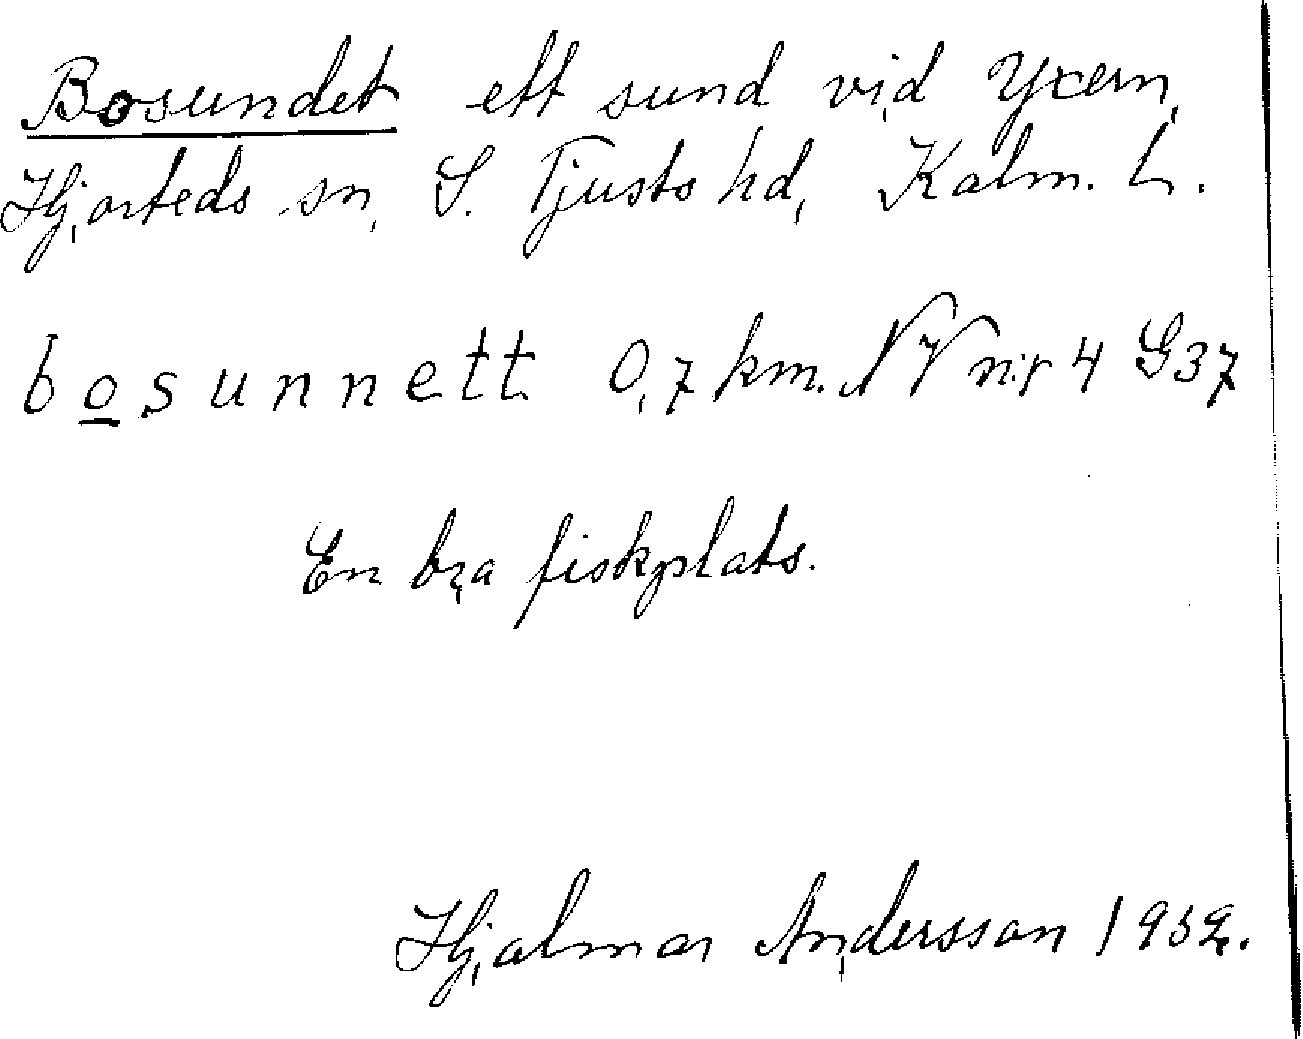 Bosundet ett sund vid Yxern,
Hjorteds sn, S. Tjusts hd, Kalm. L.
bosunnett 0,7 km. NV nr 4 G37
En bra fiskplats.
Hjalmar Andersson 1932.